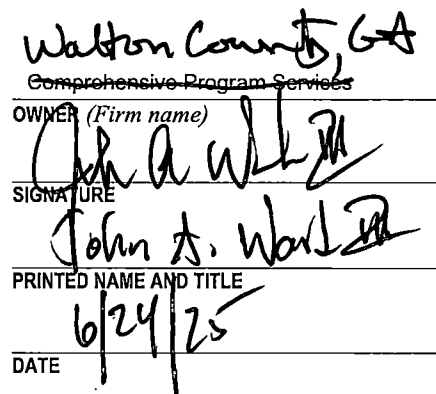 Walton County, GA
Comprehensive Program Services
OWNER (Firm name)
John A W III
SIGNATURE
John A. Ward III
PRINTED NAME AND TITLE
6/24/25
DATE